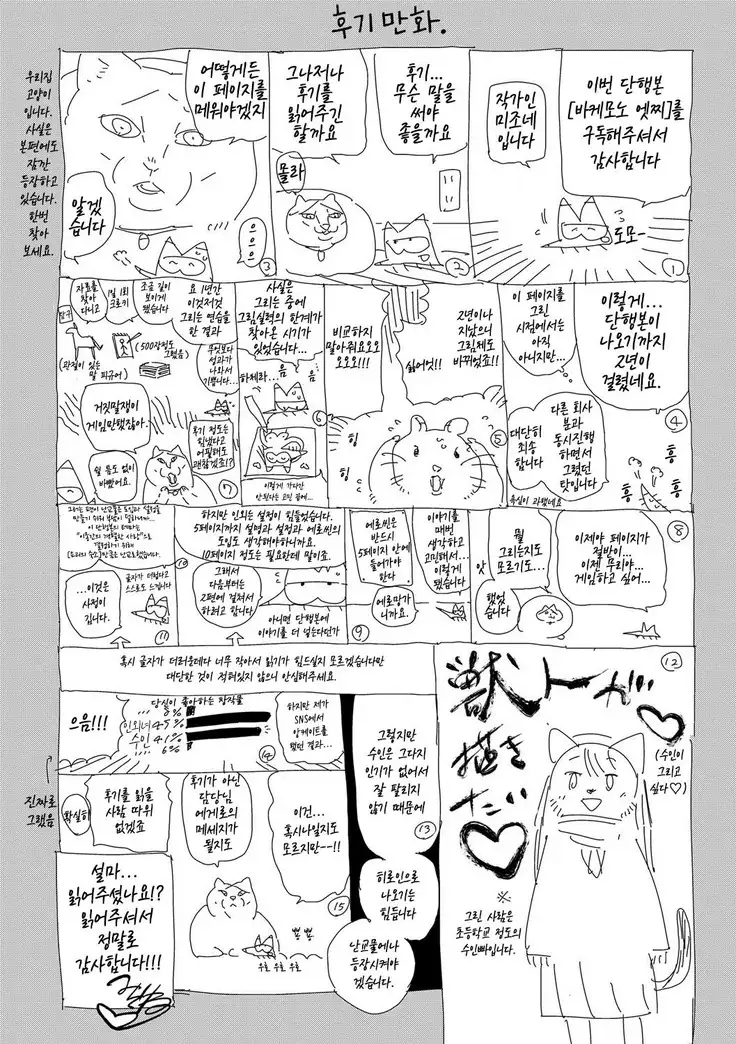 후기 만화.
이번 단행본
[바케모노 엣찌]를
구독해주셔서
감사합니다
작가인
미조네
입니다
도모-
①
후기...
무슨 말을
써야
좋을까요
그나저나
후기를
읽어주긴
할까요
몰라
②
어떻게든
이 페이지를
메워야겠지
알겠
습니다
으
으
으
③
우리집
고양이
입니다.
사실은
본편에도
잠깐
등장하고
있습니다.
한번
찾아
보세요.
이렇게...
단행본이
나오기까지
2년이
걸렸네요.
이 페이지를
그린
시점에서는
아직
아니지만...
다른 회사
분과
동시진행
하면서
그렸던
탓입니다
대단히
죄송
합니다
흥
흥
흥
욕심이 과했네요
④
2년이나
지났으니
그림체도
바뀌었죠!!
싫어엇!!
비교하지
말아줘요오오
오오오!!!
힝
힝
⑤
사실은
그리는 중에
그림실력의 한계가
찾아온 시기가
있었습니다...
하체라...
음
음
이렇게 가다간
안되다는 고민 끝에...
⑥
요 1년간
이것저것
그리는 연습을
한 결과
조금 길이
보이게
됐습니다
1일 1회
크로키
자료를
찾아
다니고
(500장정도
그렸음)
(관절이 있는
말 피규어)
무엇보다
성과가
나와서
기쁩니다...
거짓말쟁이
게임만했잖아.
쉴 틈도 없이
바빴어요.
후기 정도는
힘냈다고
어필해도
괜찮겠죠!?
⑦
이제야 페이지가
절반이...
이젠 무리야...
게임하고 싶어...
뭘
그리는지도
모르기도...
앗
했었
습니다
⑧
이야기를
매번
생각하고
고민해서...
이렇게
됐습니다
에로씬은
반드시
5페이지 안에
들어가야
한다
에로망가
니까요.
⑨
하지만 인외는 설정이 힘들었습니다.
5페이지까지 설명과 설정과 에로씬의
도입도 생각해야하니까요.
10페이지 정도는 필요한데 말이죠.
그래서
다음부터는
2편에 걸쳐서
하려고 합니다.
아니면 단행본에
이야기를 더 넣는다던가
⑩
글자가 더럽다고
스스로도 느낍니다
...이것은
사정이
깁니다.
⑪
혹시 글자가 더러운데다 너무 작아서 읽기가 힘드실지 모르겠습니다만
대단한 것이 적혀있지 않으니 안심해주세요.
⑫
獣人が
描き
たい♡
(수인이
그리고
싶다♡)
※
그린 사람은
초등학교 정도의
수인빠입니다.
그렇지만
수인은 그다지
인기가 없어서
잘 팔리지
않기 때문에
⑬
히로인으로
나오기는
힘듭니다
난교물에나
등장시켜야
겠습니다.
하지만 제가
SNS에서
앙케이트를
했던 결과...
당신이 좋아하는 창작물
8%
인외녀 45%
수인 41%
6%
으음!!!
⑭
진짜로
그랬음
이건...
혹시나일지도
모르지만--!!
후기가 아닌
담당님
에게로의
메세지가
될지도
뾰
뾰
우로 우로 우로
⑮
후기를 읽을
사람 따위
없겠죠
확실히
설마...
읽어주셨나요!?
읽어주셔서
정말로
감사합니다!!!